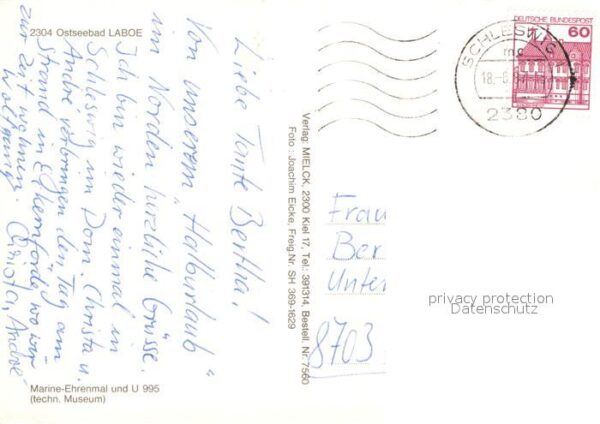 2304 Ostseebad LABOE
Liebe Tante Bertha!
Von unserem "Halburlaub"
im Norden herzliche Grüsse.
Ich bin wieder einmal in
Schleswig im Dom. Christa u.
André verbringen den Tag am
Strand in Eckernförde, wo wir
zur Zeit wohnen.
Christa, André
Wolfgang
Marine-Ehrenmal und U 995
(techn. Museum)
Verlag: MIELCK, 2300 Kiel 17, Tel.: 391314, Bestell. Nr. 7560
Foto: Joachim Eicke, Freig. Nr. SH 369-1629
SCHLESWIG
mg
2380
DEUTSCHE BUNDESPOST
60
Frau
Ber
Unter
8703
privacy protection
Datenschutz